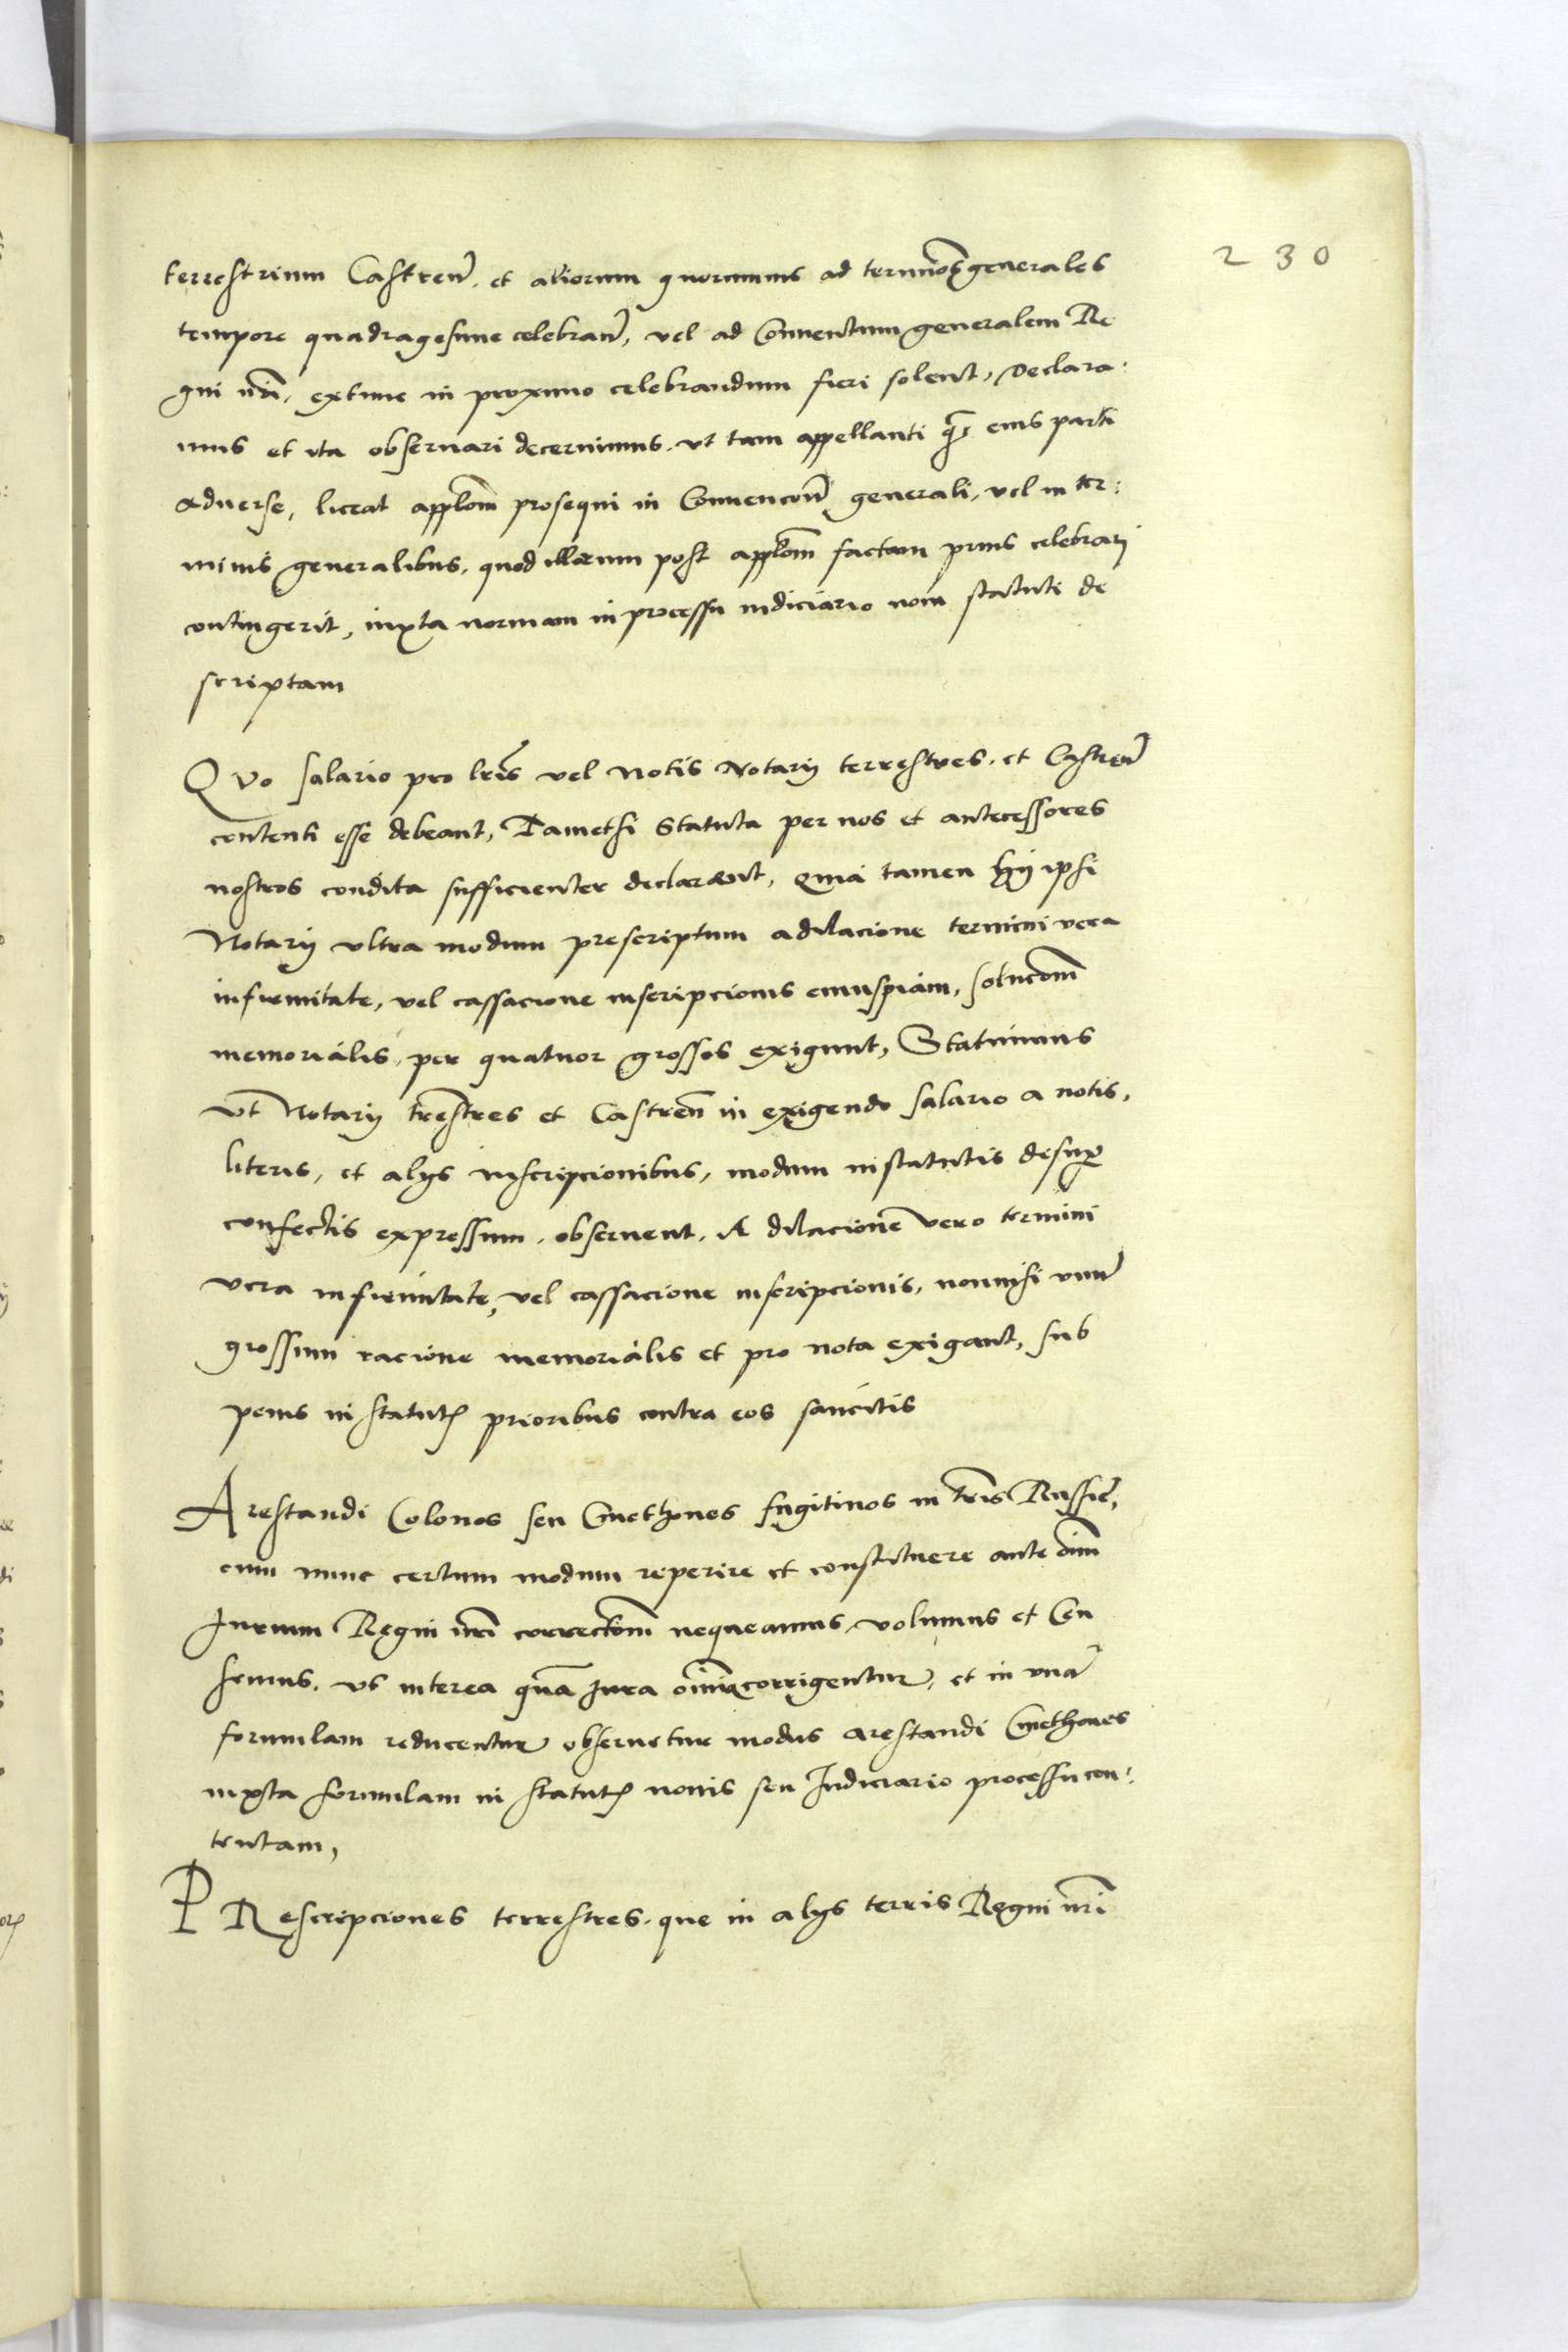 230
terrestrium Castren̄. et aliorum quorumuis ad terminos generales
tempore quadragesime celebran̄, vel ad Conuentum generalem Re
gni nr̄i, extunc in proximo celebrandum fieri solent, Declara:
mus et ita obseruari decernimus. vt tam appellanti q̄ȝ eius parti
aduerse, liceat appl̄om̄ prosequi in Conuencōn̄ generali, vel in ter:
minis generalibus, quod illorum post appl̄om̄ factam prius celebrari
contingerit, iuxta normam in processu iudiciario noui statuti de
scriptam
QVo salario pro lr̄is vel notis Notarij terrestres. et Castren̄
contenti esse debeant, Tametsi Statuta per nos et antecessores
nostros condita sufficienter declarent, quia tamen hij ipsi
Notarij vltra modum prescriptum a dilacione termini vera
infirmitate, vel cassacione inscripcionis cuiuspiam, solucōm̄
memorialis, per quatuor grossos exigunt, Statuimus
vt Notarij tr̄estres et Castren̄ in exigendo salario a notis,
literis, et alijs inscripcionibus, modum in statutis desup̄
confectis expressum, obseruent. A dilacione vero termini
vera infirmitate, vel cassacione inscripcionis, nonnisi vnū
grossum racione memorialis et pro nota exigant, sub
penis in statutꝭ prioribus contra eos sancitis
Arestandi Colonos seu Cmethones fugitiuos in tr̄is Russie,
cum nunc certum modum reperire et constituere ante oīm̄
Jurium Regni nr̄i correctōm̄ nequeamus, volumus et Cen
semus. vt interea quā Jura oīnia corrigentur, et in vnā
formulam reducentur obseruetur modus arestandi Cmethones
iuxta formulam in statutꝭ nouis seu Judiciario processu con:
tentam,
PRescripciones terrestres. que in alijs terris Regni nr̄i